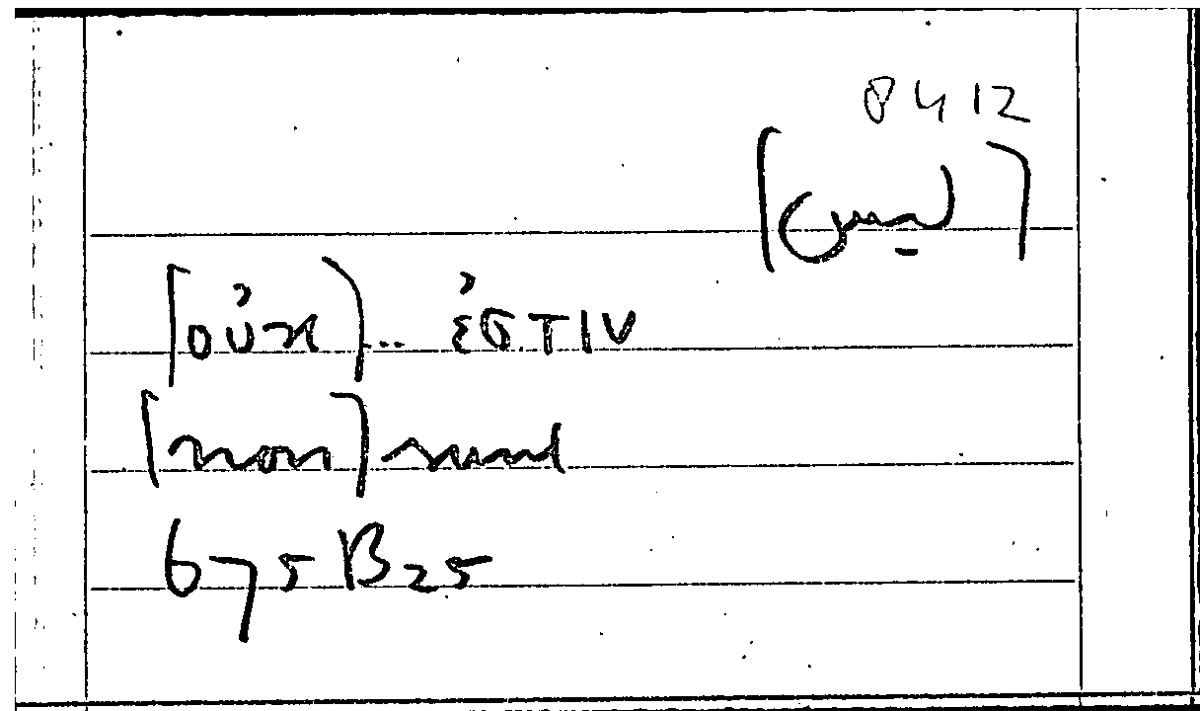 0412
[ليس]
[οὐκ]... ἐστιν
[non] sunt
675B25